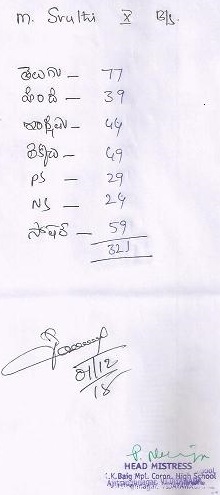 M. Sruthi X B/s
తెలుగు – 77
హిందీ – 39
ఇంగ్లీషు – 44
లెక్కలు – 49
PS – 29
NS – 24
సోషల్ – 59
321
01/12
18
HEAD MISTRESS
I.K.Baig Mpl. Corpn. High School